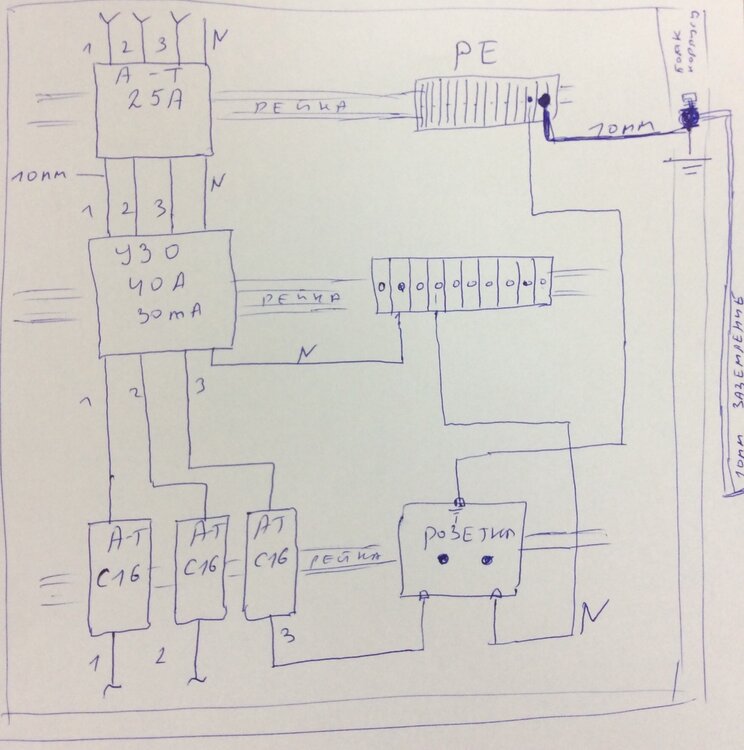 1 2 3 N
А-Т
25А
РЕЙКА
РЕ
БОЛТ
КОРПУСУ
10мм
10мм
1 2 3 N
УЗО
40А
30mA
РЕЙКА
N
1 2 3
10мм ЗАЗЕМЛЕНИЕ
А-Т
С16
А-Т
С16
АТ
С16
РЕЙКА
РОЗЕТКА
1 2 3
N